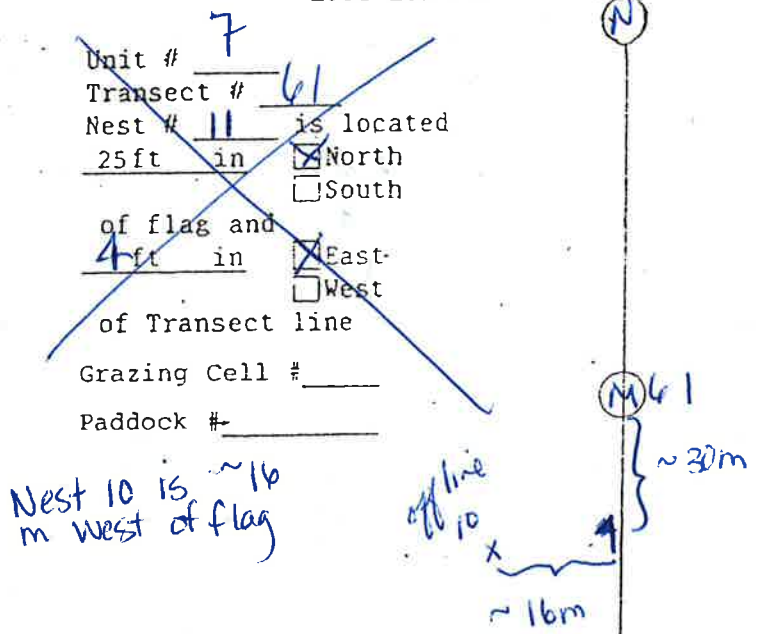 N
Unit # 7
Transect # 61
Nest # 11 is located
25ft in ☒North
☐South
of flag and
4ft in ☒East
☐West
of Transect line
Grazing Cell #
Paddock #
M 61
~ 30m
Nest 10 is ~16
m west of flag
off line
10
x
~ 16m